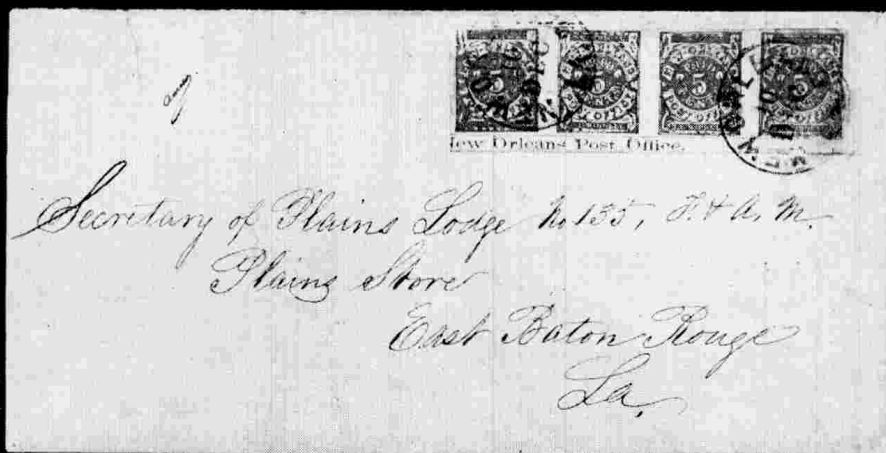 5 5 5 5
New Orleans Post Office.
Secretary of Plains Lodge No 135, F. & A. M.
Plains Store
East Baton Rouge
La.